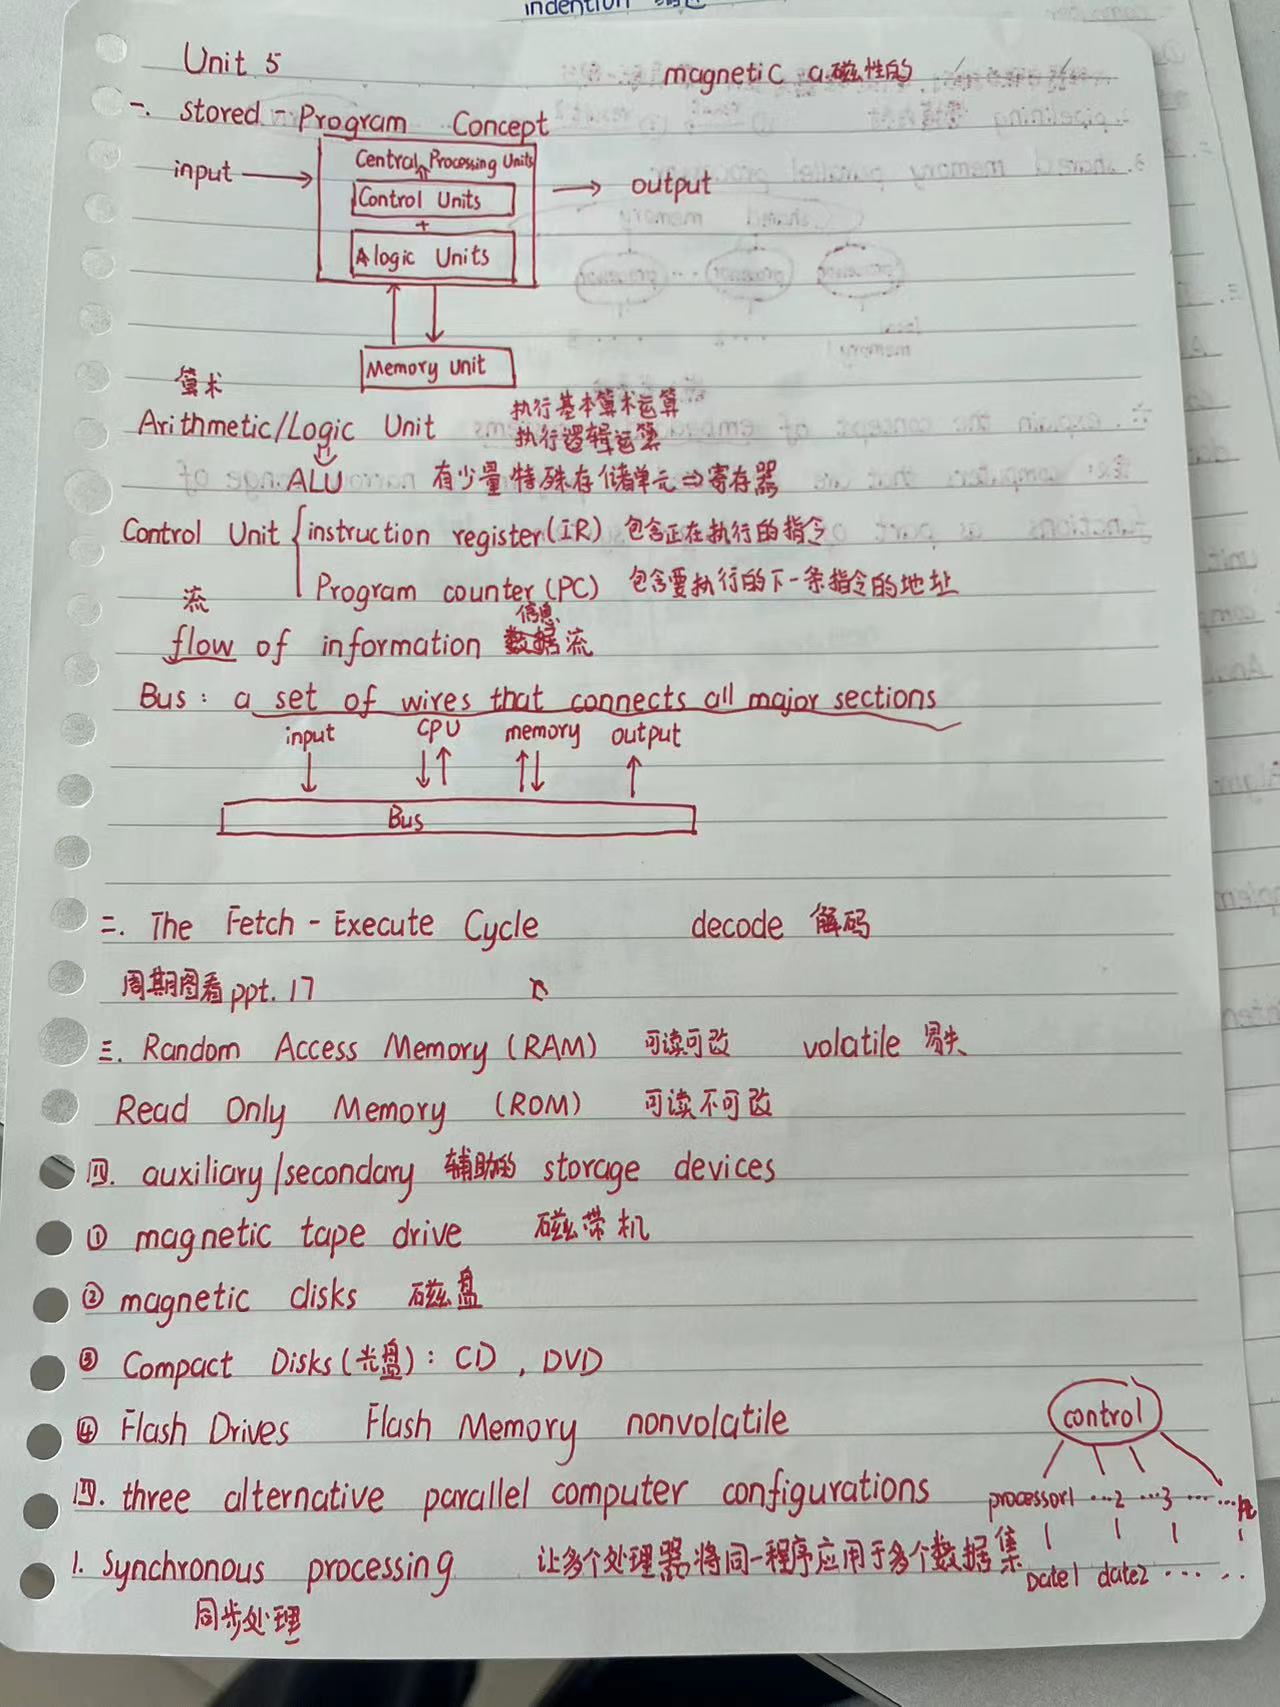 indention
Unit 5
magnetic a.磁性的
一. Stored-Program Concept
Central Processing Units
input
Control Units
output
+
Alogic Units
Memory unit
算术
Arithmetic/Logic Unit 执行基本算术运算
执行逻辑运算
ALU 有少量特殊存储单元⇒寄存器
Control Unit { instruction register(IR) 包含正在执行的指令
Program counter(PC) 包含要执行的下一条指令的地址
流
信息
flow of information 数据流
Bus: a set of wires that connects all major sections
input CPU memory output
Bus
二. The Fetch-Execute Cycle decode 解码
周期图看ppt.17
三. Random Access Memory (RAM) 可读可改 volatile 易失
Read Only Memory (ROM) 可读不可改
四. auxiliary/secondary 辅助的 storage devices
① magnetic tape drive 磁带机
② magnetic disks 磁盘
③ Compact Disks(光盘): CD, DVD
④ Flash Drives Flash Memory nonvolatile
control
四. three alternative parallel computer configurations
processor1 ...2 ...3 ... ...n
1. Synchronous processing 让多个处理器将同一程序应用于多个数据集
Date1 date2 ... ..
同步处理